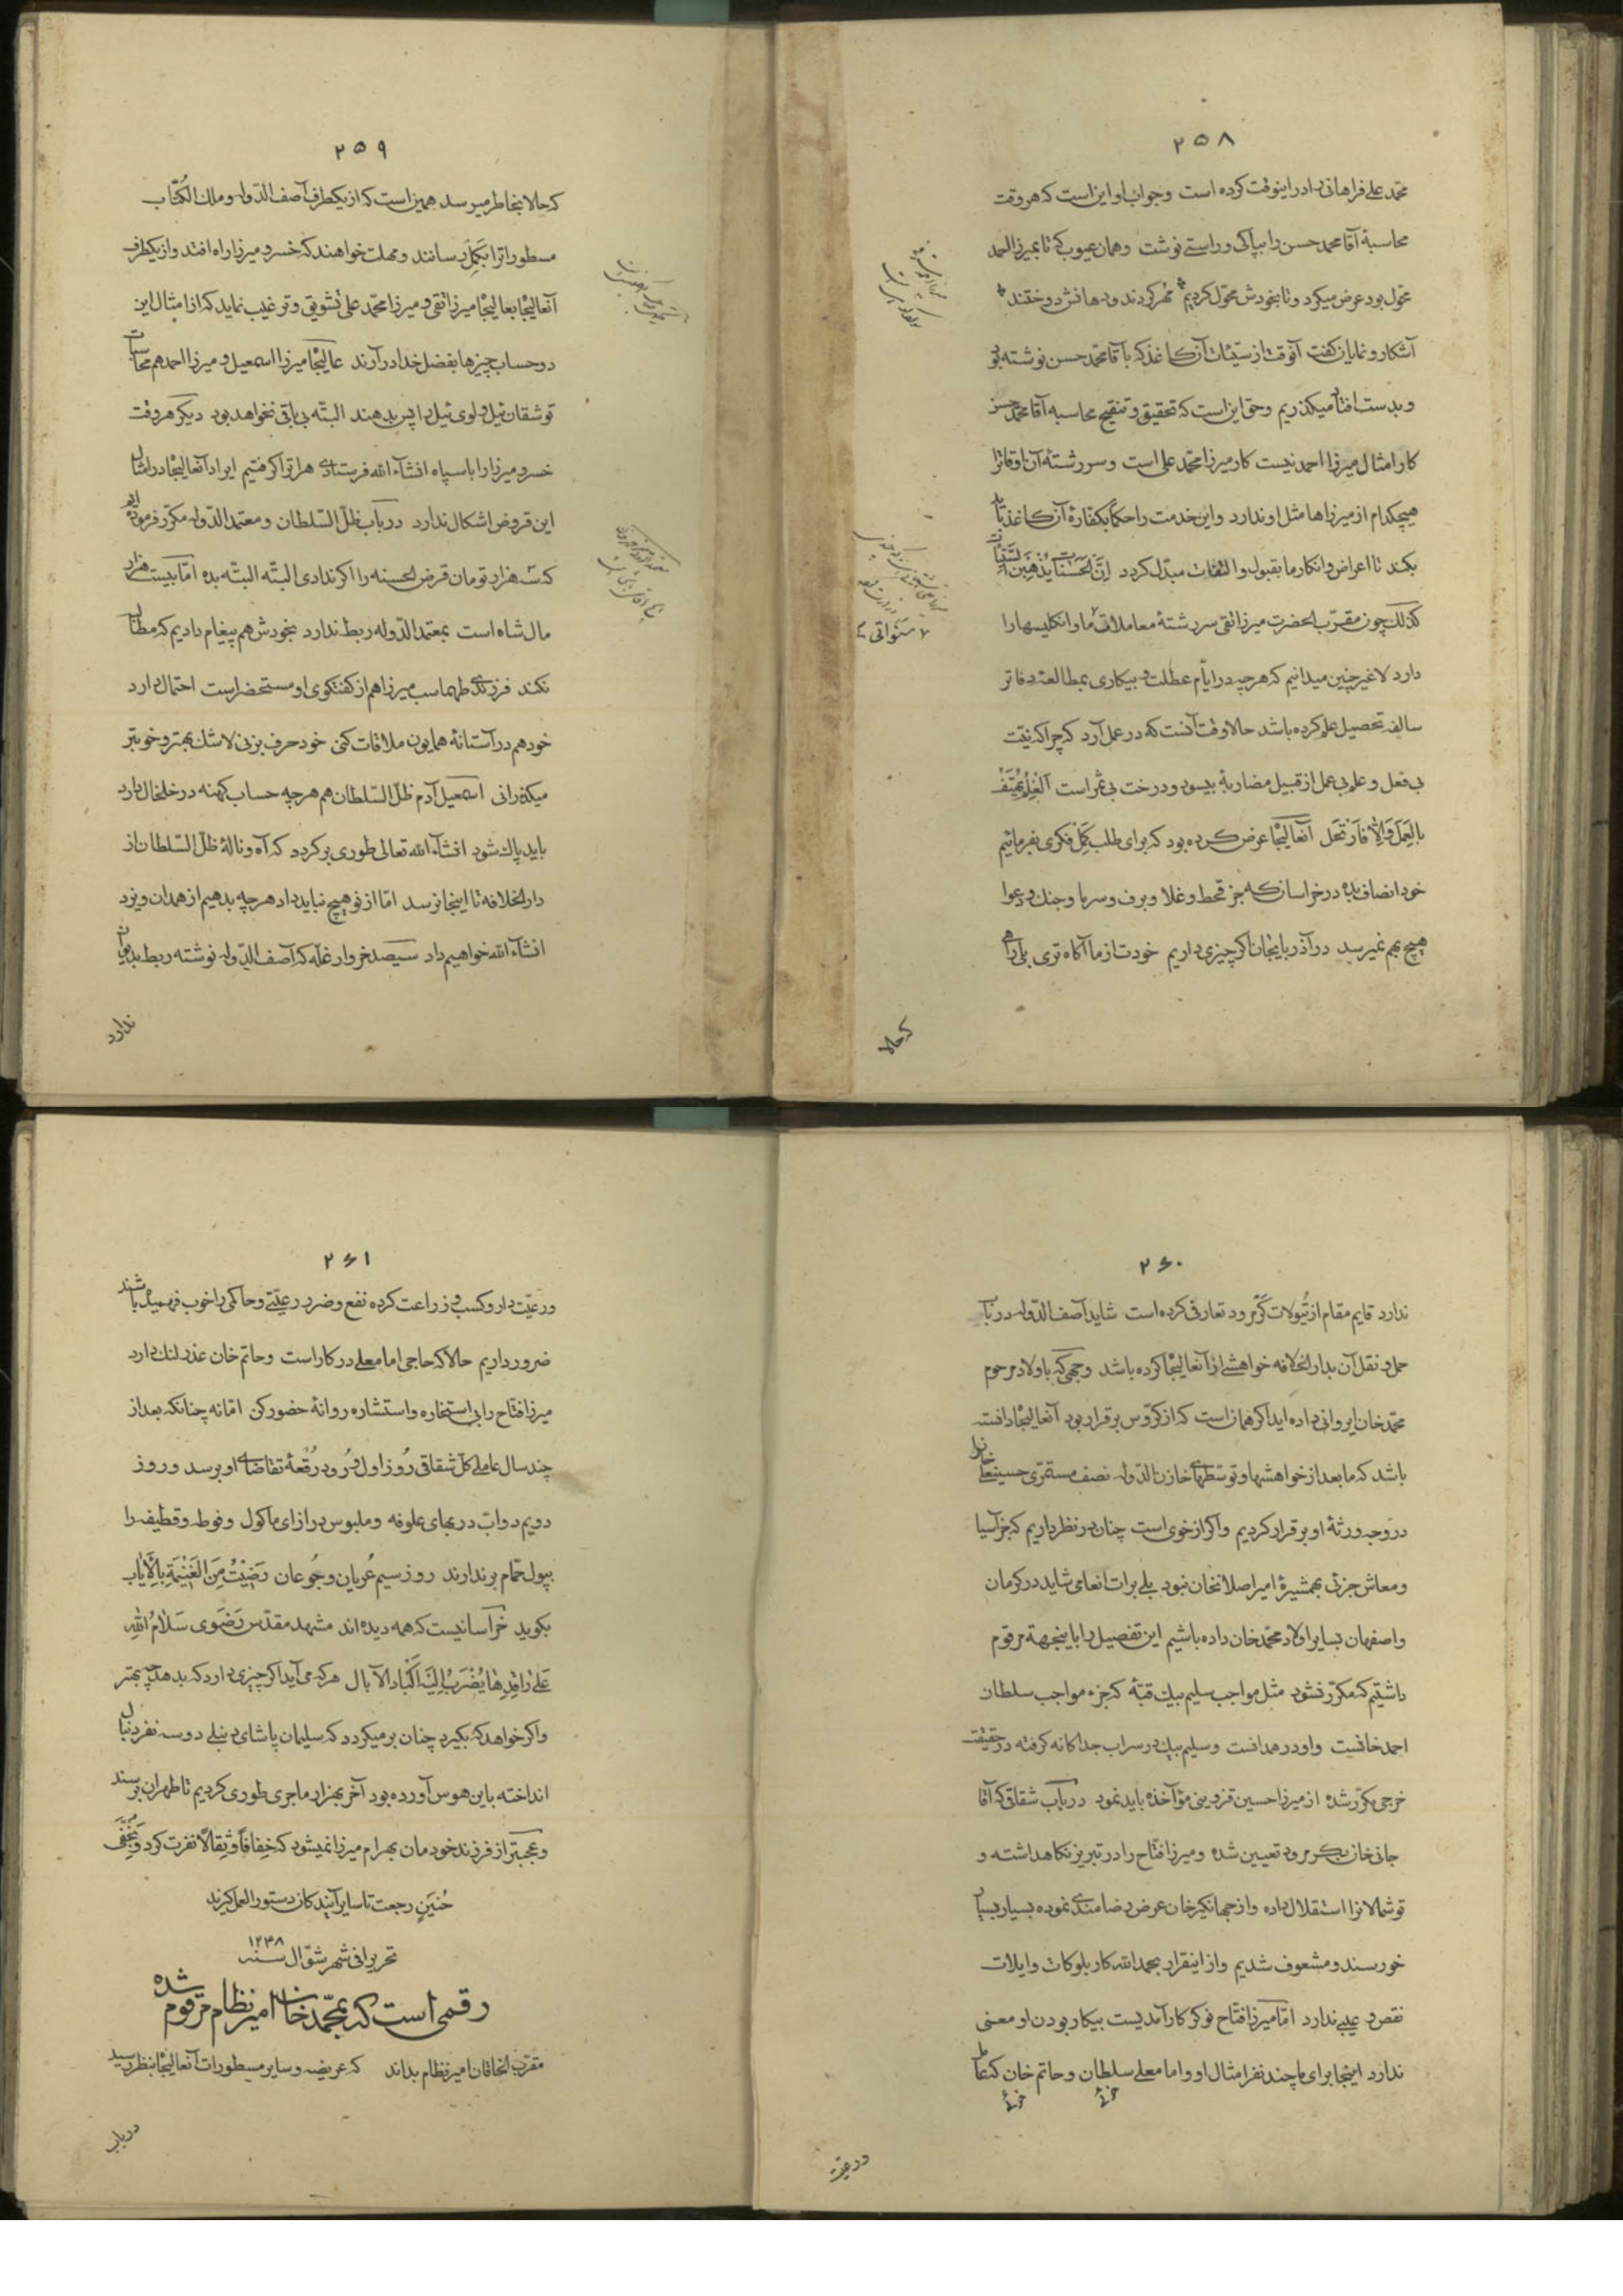 ۲۵۸
محمد علی فراهانی را در اینوقت کرده است و جواب او این است که هر وقت
محاسبهٔ آقا محمد حسن را بپاکی و راستی نوشت و همان عیوب که تا بمیرزا احمد
محول بود عرض میکرد و تا بخودش محول کردیم مهر کردند و دهانش دوختند
آشکار و نمایان گفت آنوقت از سیئات آن کاغذ که بآقا محمد حسن نوشته بود
و بدست افتاد میگذریم و حق این است که تحقیق و تنقیح محاسبه آقا محمد حسن
کار امثال میرزا احمد نیست کار میرزا محمد علی است و سررشتهٔ آن اوقات را
هیچکدام از میرزاها مثل او ندارد و این خدمت را حکماً بکفارهٔ آن کاغذ باید
بکند تا اعراض و انکار ما بقبول و التفات مبدل گردد اِنَّ الحَسَنات یُذهِبنَ السَّیِّئات
کذلک چون مقرب الحضرت میرزا تقی سررشتهٔ معاملات ما و انگلیسها را
دارد لاغیر چنین میدانیم که هر چه در ایام عطلت و بیکاری بمطالعهٔ دفاتر
سالفه تحصیل علم کرده باشد حالا وقت آنست که در عمل آرد که چرا که نیت
بی فعل و علم بی عمل از قبیل مضاربهٔ بیسود و درخت بی ثمر است اَلعِلمُ یَهتِفُ
بِالعَمَلِ وَ اِلّا فَارتَحَل آنعالیجاه عرض کرده بود که برای طلب کمل فکری بفرمائیم
خود انصاف بده در خراسان که جز قحط و غلا و برف و سرما و جنگ و دعوا
هیچ بهم نمیرسد در آذربایجان اگر چیزی داریم خودت از ما آگاه تری بلی راهی
که حالا
سنواتی
۲۵۹
که حالا بخاطر میرسد همین است که از یکطرف آصف الدوله و ملک الکتاب
مسطوراترا بکمل رسانند و مهلت خواهند که خسرو میرزا راه افتد و از یکطرف
آنعالیجاه بعالیجاه میرزا تقی و میرزا محمد علی تشویق و ترغیب نماید که از امثال این
دو حساب چیزها بفضل خدا در آرند عالیجاه میرزا اسمعیل و میرزا احمد هم محاسبات
توشقان ئیل و لوی ئیل را پس بدهند البته بی باقی نخواهد بود دیگر هر وقت
خسرو میرزا را با سپاه انشاءالله فرستادی هرات را گرفتیم ایراد آنعالیجاه در امثال
این قروض اشکال ندارد در باب ظل السلطان و معتمد الدوله مکرر فرموده ایم
که سه هزار تومان قرض الحسنه را اگر ندادی البته البته بده اما بیست هزار
مال شاه است بمعتمد الدوله ربط ندارد بخودش هم پیغام دادیم که مطالبه
نکند فرزندی طهماسب میرزا هم از گفتگوی او مستحضر است احتمال دارد
خود هم در آستانهٔ همایون ملاقات کنی خود حرف بزنی لاشک بهتر و خوبتر
میگذرانی اسمعیل آدم ظل السلطان هم هر چه حساب کهنه در خلخال دارد
باید پاک شود انشاءالله تعالی طوری برگردد که آه و نالهٔ ظل السلطان از
دار الخلافه تا اینجا نرسد اما از نو هیچ نباید داد هر چه بدهیم از همدان و یزد
انشاءالله خواهیم داد سیصد خروار غله که آصف الدوله نوشته ربط بدیوان
ندارد
۲۶۰
ندارد قایم مقام از تیولات گرمرود تعارفی کرده است شاید آصف الدوله در باب
حمل و نقل آن بدار الخلافه خواهشی از آنعالیجاه کرده باشد وجهی که باولاد مرحوم
محمد خان ایروانی داده اید اگر همان است که از کروس برقرار بود آنعالیجاه دانسته
باشد که ما بعد از خواهشها و توسطهای خازن الدوله نصف مستمری حسینعلی خان را
در وجه ورثهٔ او برقرار کردیم و اگر از خوی است چنان در نظر داریم که جز آسیا
و معاش جزئی بهمشیرهٔ امیر اصلانخان نبود بلی برات انعامی شاید در کرمان
و اصفهان بسایر اولاد محمد خان داده باشیم این تفصیل را باینجهة مرقوم
داشتیم که مکرر نشود مثل مواجب سلیم بیک قبه که جزء مواجب سلطان
احمد خانست و او در همدانست و سلیم بیک در سراب جداگانه گرفته در حقیقت
خرجی مکرر شده از میرزا حسین قزوینی مؤآخذه باید نمود در باب شقاقی که آقا
جانی خان بگرمرود تعیین شده و میرزا فتاح را در تبریز نگاهداشته و
توشمالانرا استقلال داده و از جهانگیر خان عرض رضامندی نموده بسیار بسیار
خورسند و مشعوف شدیم و از اینقرار بحمد الله کار بلوکات و ایلات
نقص و عیبی ندارد اما میرزا فتاح نوکر کار آمدیست بیکار بودن او معنی
ندارد اینجا برای ما چند نفر امثال او و اما معلی سلطان و حاتم خان که عامل
و رعیت
۲۶۱
و رعیت دار و کسب و زراعت کرده نفع و ضرر رعیتی و حاکمی را خوب فهمیده باشند
ضرور داریم حالا که حاجی امامعلی در کار است و حاتم خان عذر لنگ دارد
میرزا فتاح را بی استخاره و استشاره روانهٔ حضور کن اما نه چنانکه بعد از
چند سال عاملی کل شقاقی روز اول ورود رقعهٔ تقاضای او برسد و روز
دویم دواب در بهای علوفه و ملبوس در ازای ماکول و فوطه و قطیفه را
بپول حمام بر ندارند روز سیم عُریان و جُوعان رَضیتُ مِنَ الغَنیمَةِ بِالاِیاب
بگوید خراسانیست که همه دیده اند مشهد مقدس رَضَوی سَلامُ اللهِ
عَلی راقِدِها یُضرَبُ اِلَیهِ اَکبادُ الآبال هر که می آید اگر چیزی دارد که بدهد چه بهتر
و اگر خواهد که بگیرد چنان بر میگردد که سلیمان پاشای دنبلی دو سه نفر دنبال
انداخته باین هوس آورده بود آخر بهزار ماجری طوری کردیم تا طهران برسند
و عجبتر از فرزند خودمان بهرام میرزا نمیشود که خِفافاً و ثِقالاً نفرت کرد و بِخُفَّی
حُنَینٍ رجعت تا سایر آیندگان دستور العمل گیرند
تحریرا فی شهر شوال سنه ۱۲۴۸
رقمی است که بمحمد خان امیر نظام مرقوم شده
مقرب الخاقان امیر نظام بداند که عریضه و سایر مسطورات آنعالیجاه بنظر رسید
در باب